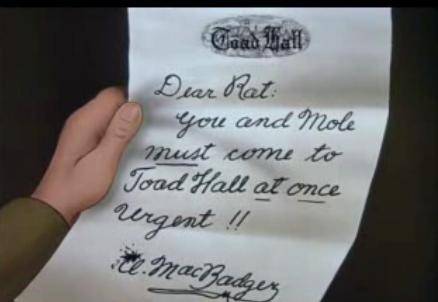 Toad Hall
Dear Rat:
You and Mole
must come to
Toad Hall at once
Urgent !!
A. MacBadger